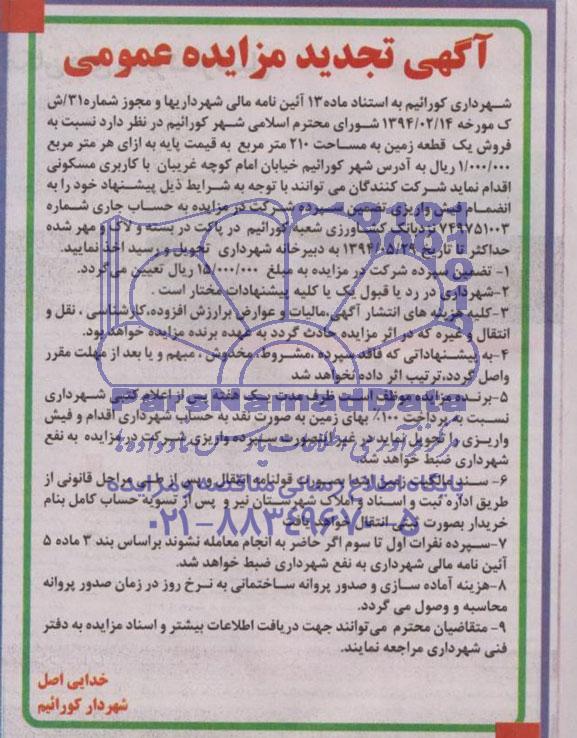 آگهی تجدید مزایده عمومی
شهرداری کورائیم به استناد ماده۱۳ آئین نامه مالی شهرداریها و مجوز شماره۳۱/ش
ک مورخه ۱۳۹۴/۰۲/۱۴ شورای محترم اسلامی شهر کورائیم در نظر دارد نسبت به
فروش یک قطعه زمین به مساحت ۲۱۰ متر مربع به قیمت پایه به ازای هر متر مربع
۱/۰۰۰/۰۰۰ ریال به آدرس شهر کورائیم خیابان امام کوچه غریبان با کاربری مسکونی
اقدام نماید شرکت کنندگان می توانند با توجه به شرایط ذیل پیشنهاد خود را به
انضمام فیش واریزی تضمین سپرده شرکت در مزایده به حساب جاری شماره
۷۴۹۷۵۱۰۰۳ نزدبانک کشاورزی شعبه کورائیم در پاکت در بسته و لاک و مهر شده
حداکثر تا تاریخ ۱۳۹۴/۰۵/۲۹ به دبیرخانه شهرداری تحویل و رسید اخذ نمایید.
۱- تضمین سپرده شرکت در مزایده به مبلغ ۱۵/۰۰۰/۰۰۰ ریال تعیین می‌گردد.
۲-شهرداری در رد یا قبول یک یا کلیه پیشنهادات مختار است .
۳-کلیه هزینه های انتشار آگهی،مالیات و عوارض برارزش افزوده،کارشناسی ، نقل و
انتقال و غیره که در اثر مزایده حادث گردد به عهده برنده مزایده خواهد بود.
۴-به پیشنهاداتی که فاقد سپرده ،مشروط، مخدوش ، مبهم و یا بعد از مهلت مقرر
واصل گردد،ترتیب اثر داده نخواهد شد
۵-برنده مزایده موظف است ظرف مدت یک هفته پس از اعلام کتبی شهرداری
نسبت به پرداخت ۱۰۰٪ بهای زمین به صورت نقد به حساب شهرداری اقدام و فیش
واریزی را تحویل نماید در غیر اینصورت سپرده واریزی شرکت در مزایده به نفع
شهرداری ضبط خواهد شد.
۶- سند مالکیت زمین ابتدا بصورت قولنامه انتقال و پس از طی مراحل قانونی از
طریق اداره ثبت و اسناد و املاک شهرستان نیر و پس از تسویه حساب کامل بنام
خریدار بصورت ثبتی انتقال خواهد یافت
۷-سپرده نفرات اول تا سوم اگر حاضر به انجام معامله نشوند براساس بند ۳ ماده ۵
آئین نامه مالی شهرداری به نفع شهرداری ضبط خواهد شد.
۸-هزینه آماده سازی و صدور پروانه ساختمانی به نرخ روز در زمان صدور پروانه
محاسبه و وصول می گردد.
۹- متقاضیان محترم می‌توانند جهت دریافت اطلاعات بیشتر و اسناد مزایده به دفتر
فنی شهرداری مراجعه نمایند.
خدایی اصل
شهردار کورائیم
ParsNamadData
پایگاه اطلاع رسانی مناقصه و مزایده
۰۲۱-۸۸۳۴۹۶۷۰-۵